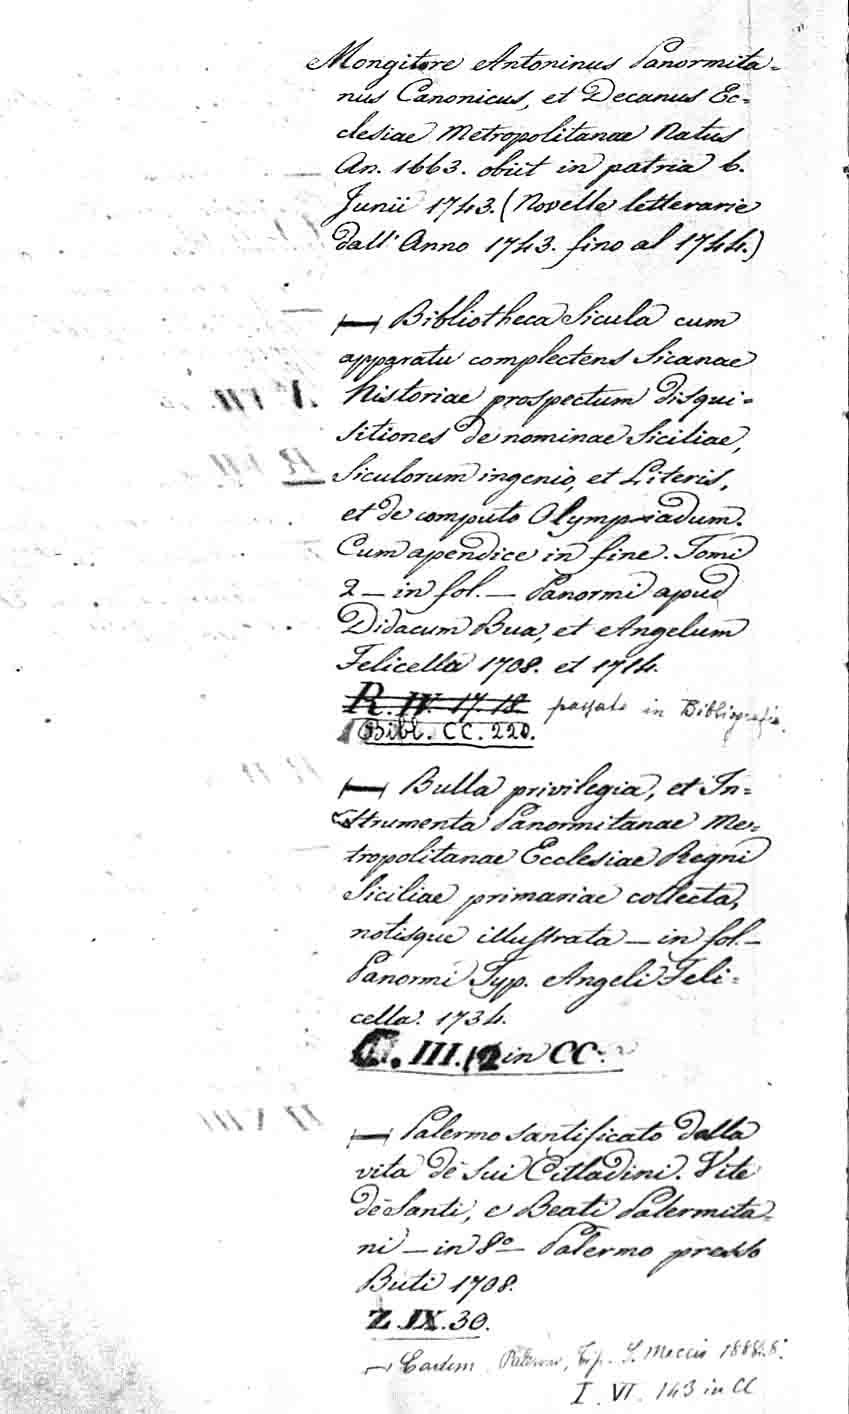 Mongitore Antoninus Panormita=
nus Canonicus, et Decanus Ec=
clesiae Metropolitanae Natus
An. 1663. obiit in patria 6.
Junii 1743. (Novelle letterarie
dall' Anno 1743. fino al 1744.)
— Bibliotheca Sicula cum
apparatu complectens Sicanae
historiae prospectum disqui=
sitiones de nominae Siciliae,
Siculorum ingenio, et Literis,
et de computo Olympiadum.
Cum apendice in fine. Tomi
2 — in fol. — Panormi apud
Didacum Bua, et Angelum
Felicella 1708. et 1714.
R. IV. 17. 18. passato in Bibliografia.
Bibl. CC. 220.
— Bulla privilegia, et In=
strumenta Panormitanae Me=
tropolitanae Ecclesiae Regni
Siciliae primariae collecta,
notisque illustrata — in fol. —
Panormi Typ. Angeli Feli=
cella. 1734.
C. III. 12 in CC.
— Palermo santificato dalla
vita de' sui Cittadini. Vite
de' Santi, e Beati Palermita=
ni — in 8º — Palermo presso
Buti 1708.
Z. IX. 30.
— Eadem. Palermo, Tip. S. Meccio 1888. 8º
I. VI. 143 in CC